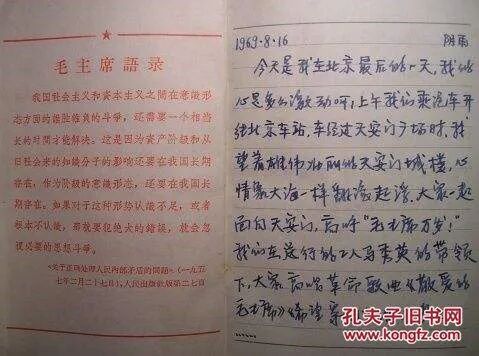 毛主席語录
我国社会主义和资本主义之間在意識形
态方面的誰胜誰負的斗爭，还需要一个相当
长的时間才能解决。这是因为資产阶級和从
旧社会来的知識分子的影响还要在我国长期
存在，作为阶級的意識形态，还要在我国长
期存在。如果对于这种形势认識不足，或者
根本不认識，那就要犯絕大的錯誤，就会忽
視必要的思想斗爭。
《关于正确处理人民内部矛盾的問題》（一九五
七年二月二十七日），人民出版社版第二七頁
1969·8·16 阴雨
今天是我在北京最后的一天，我的
心是多么激动呀，上午我们乘汽车开
往北京车站，车经过天安门广场时，我
望着雄伟壮丽的天安门城楼，心
情象大海一样翻滚起浮，大家一起
面向天安门，高呼“毛主席万岁！”
我们在送行的工人马秀英的带领
下，大家高唱革命歌曲《敬爱的
毛主席》《希望
孔夫子旧书网